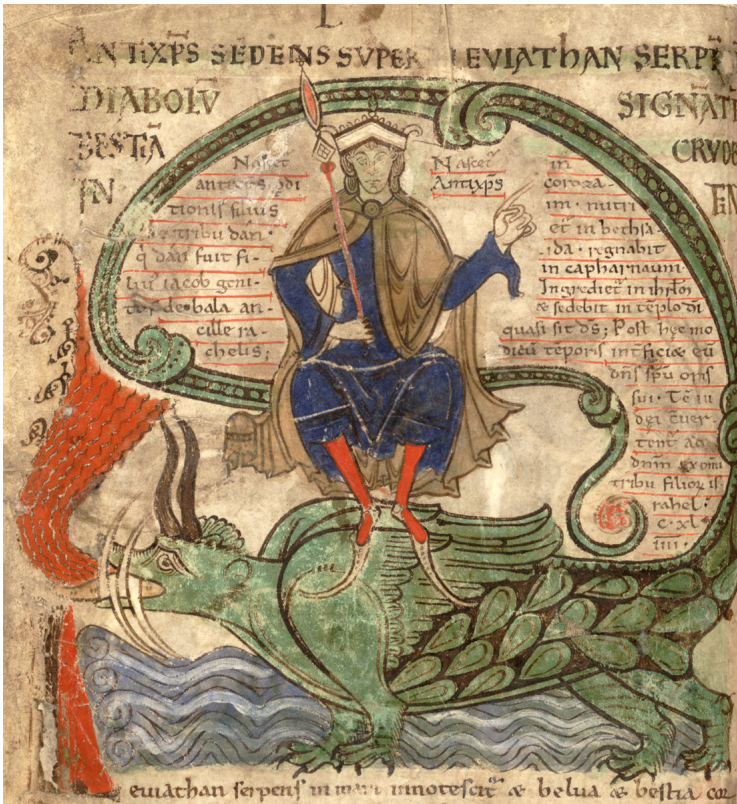 ANTIXPS SEDENS SUPER LEVIATHAN SERPĒ
DIABOLV̄ SIGNĀT
BESTIĀ CRVDE
IN FIN
Nascet᷑
antixps ꝑdi
tionis filius
de tribu dan·
q̄ dan fuit fi-
lius iacob geni-
de bala an-
cille ra-
chelis;
Nascet᷑ in
Antixps coroza-
im· nutri
et᷑ in bethsa-
ida· regnabit
in capharnaum·
Ingrediet᷑ in ihrlm̄
& sedebit in tēplo dī
quasi sit ds̄; Post hęc mo
dicū tēporis int̄ficiæ eū
dn̄s sp̄u oris
sui· Tc̄ iu
dei c̄uer
tent᷑ ad
dnm̄ ex om̄i
tribu filioꝝ is
rahel·
c·xl
iiii·
eviathan serpens in mari innotescit᷑ & belua & bestia cor